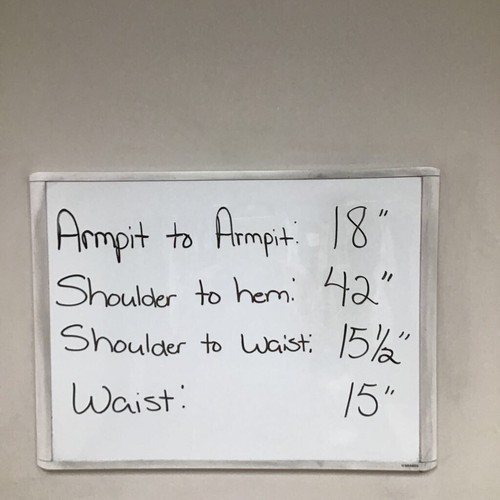 Armpit to Armpit: 18"
Shoulder to hem: 42"
Shoulder to Waist: 15½"
Waist: 15"